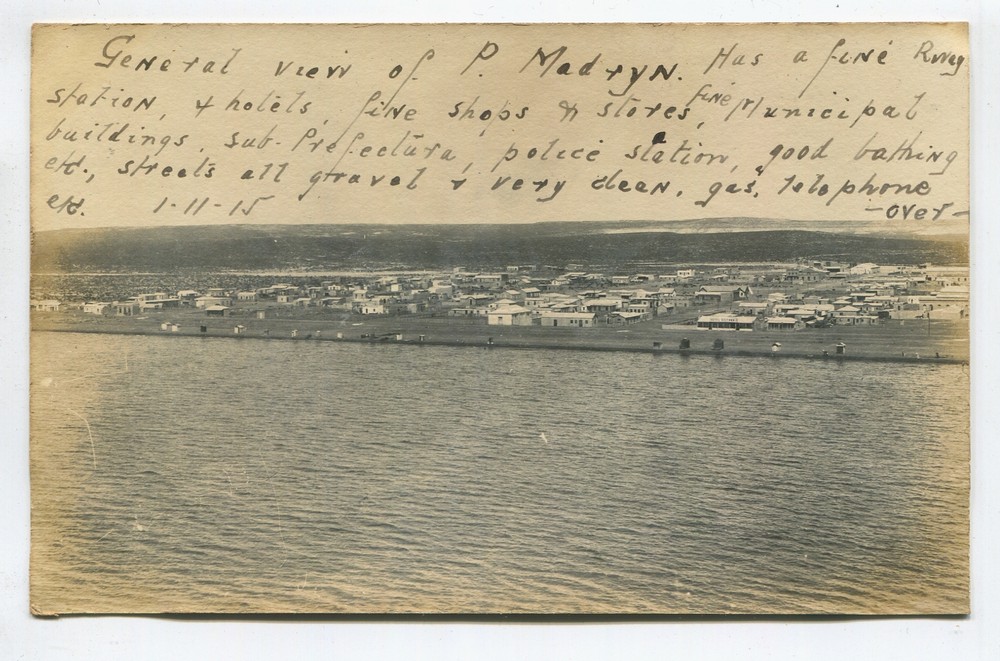 General view of P. Madryn. Has a fine Rway
station, 4 hotels, fine shops & stores, fine Municipal
buildings, sub-Prefectura, police station, good bathing
etc., streets all gravel & very clean, gas, telephone
etc. 1-11-15 -over-